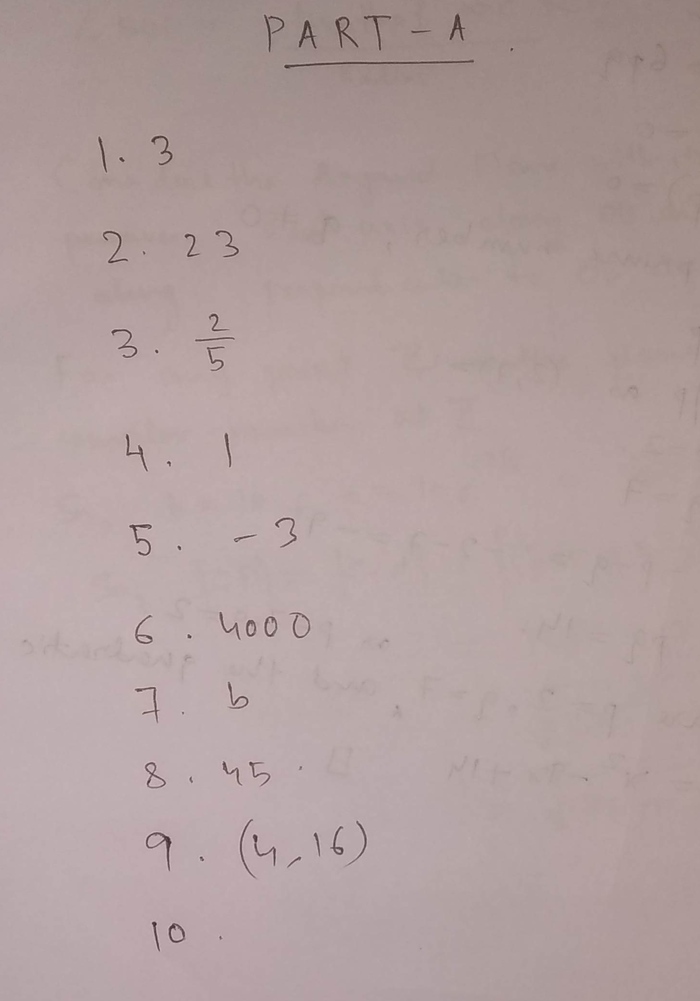 PART-A.
1. 3
2. 23
3. 2/5
4. 1
5. -3
6. 4000
7. b
8. 45.
9. (4,16)
10.